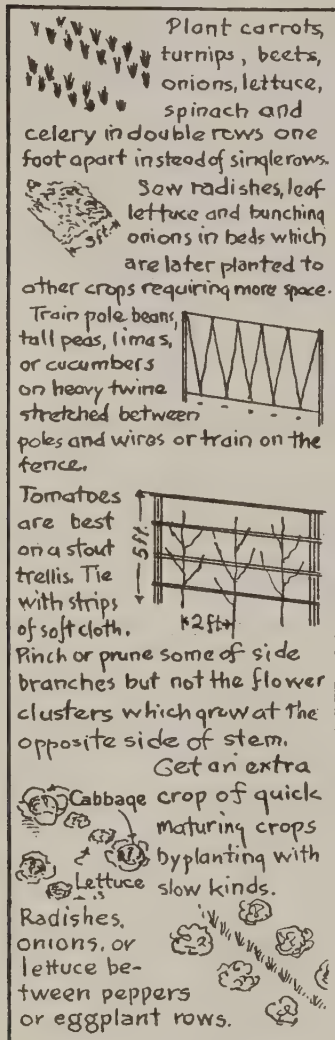 Plant carrots,
turnips, beets,
onions, lettuce,
spinach and
celery in double rows one
foot apart instead of single rows.
3ft
Sow radishes, leaf
lettuce and bunching
onions in beds which
are later planted to
other crops requiring more space.
Train pole beans,
tall peas, limas,
or cucumbers
on heavy twine
stretched between
poles and wires or train on the
fence.
Tomatoes
are best
on a stout
trellis. Tie
with strips
of soft cloth.
5ft.
2ft
Pinch or prune some of side
branches but not the flower
clusters which grow at the
opposite side of stem.
Get an extra
crop of quick
maturing crops
by planting with
slow kinds.
Cabbage
Lettuce
Radishes,
onions, or
lettuce be-
tween peppers
or eggplant rows.